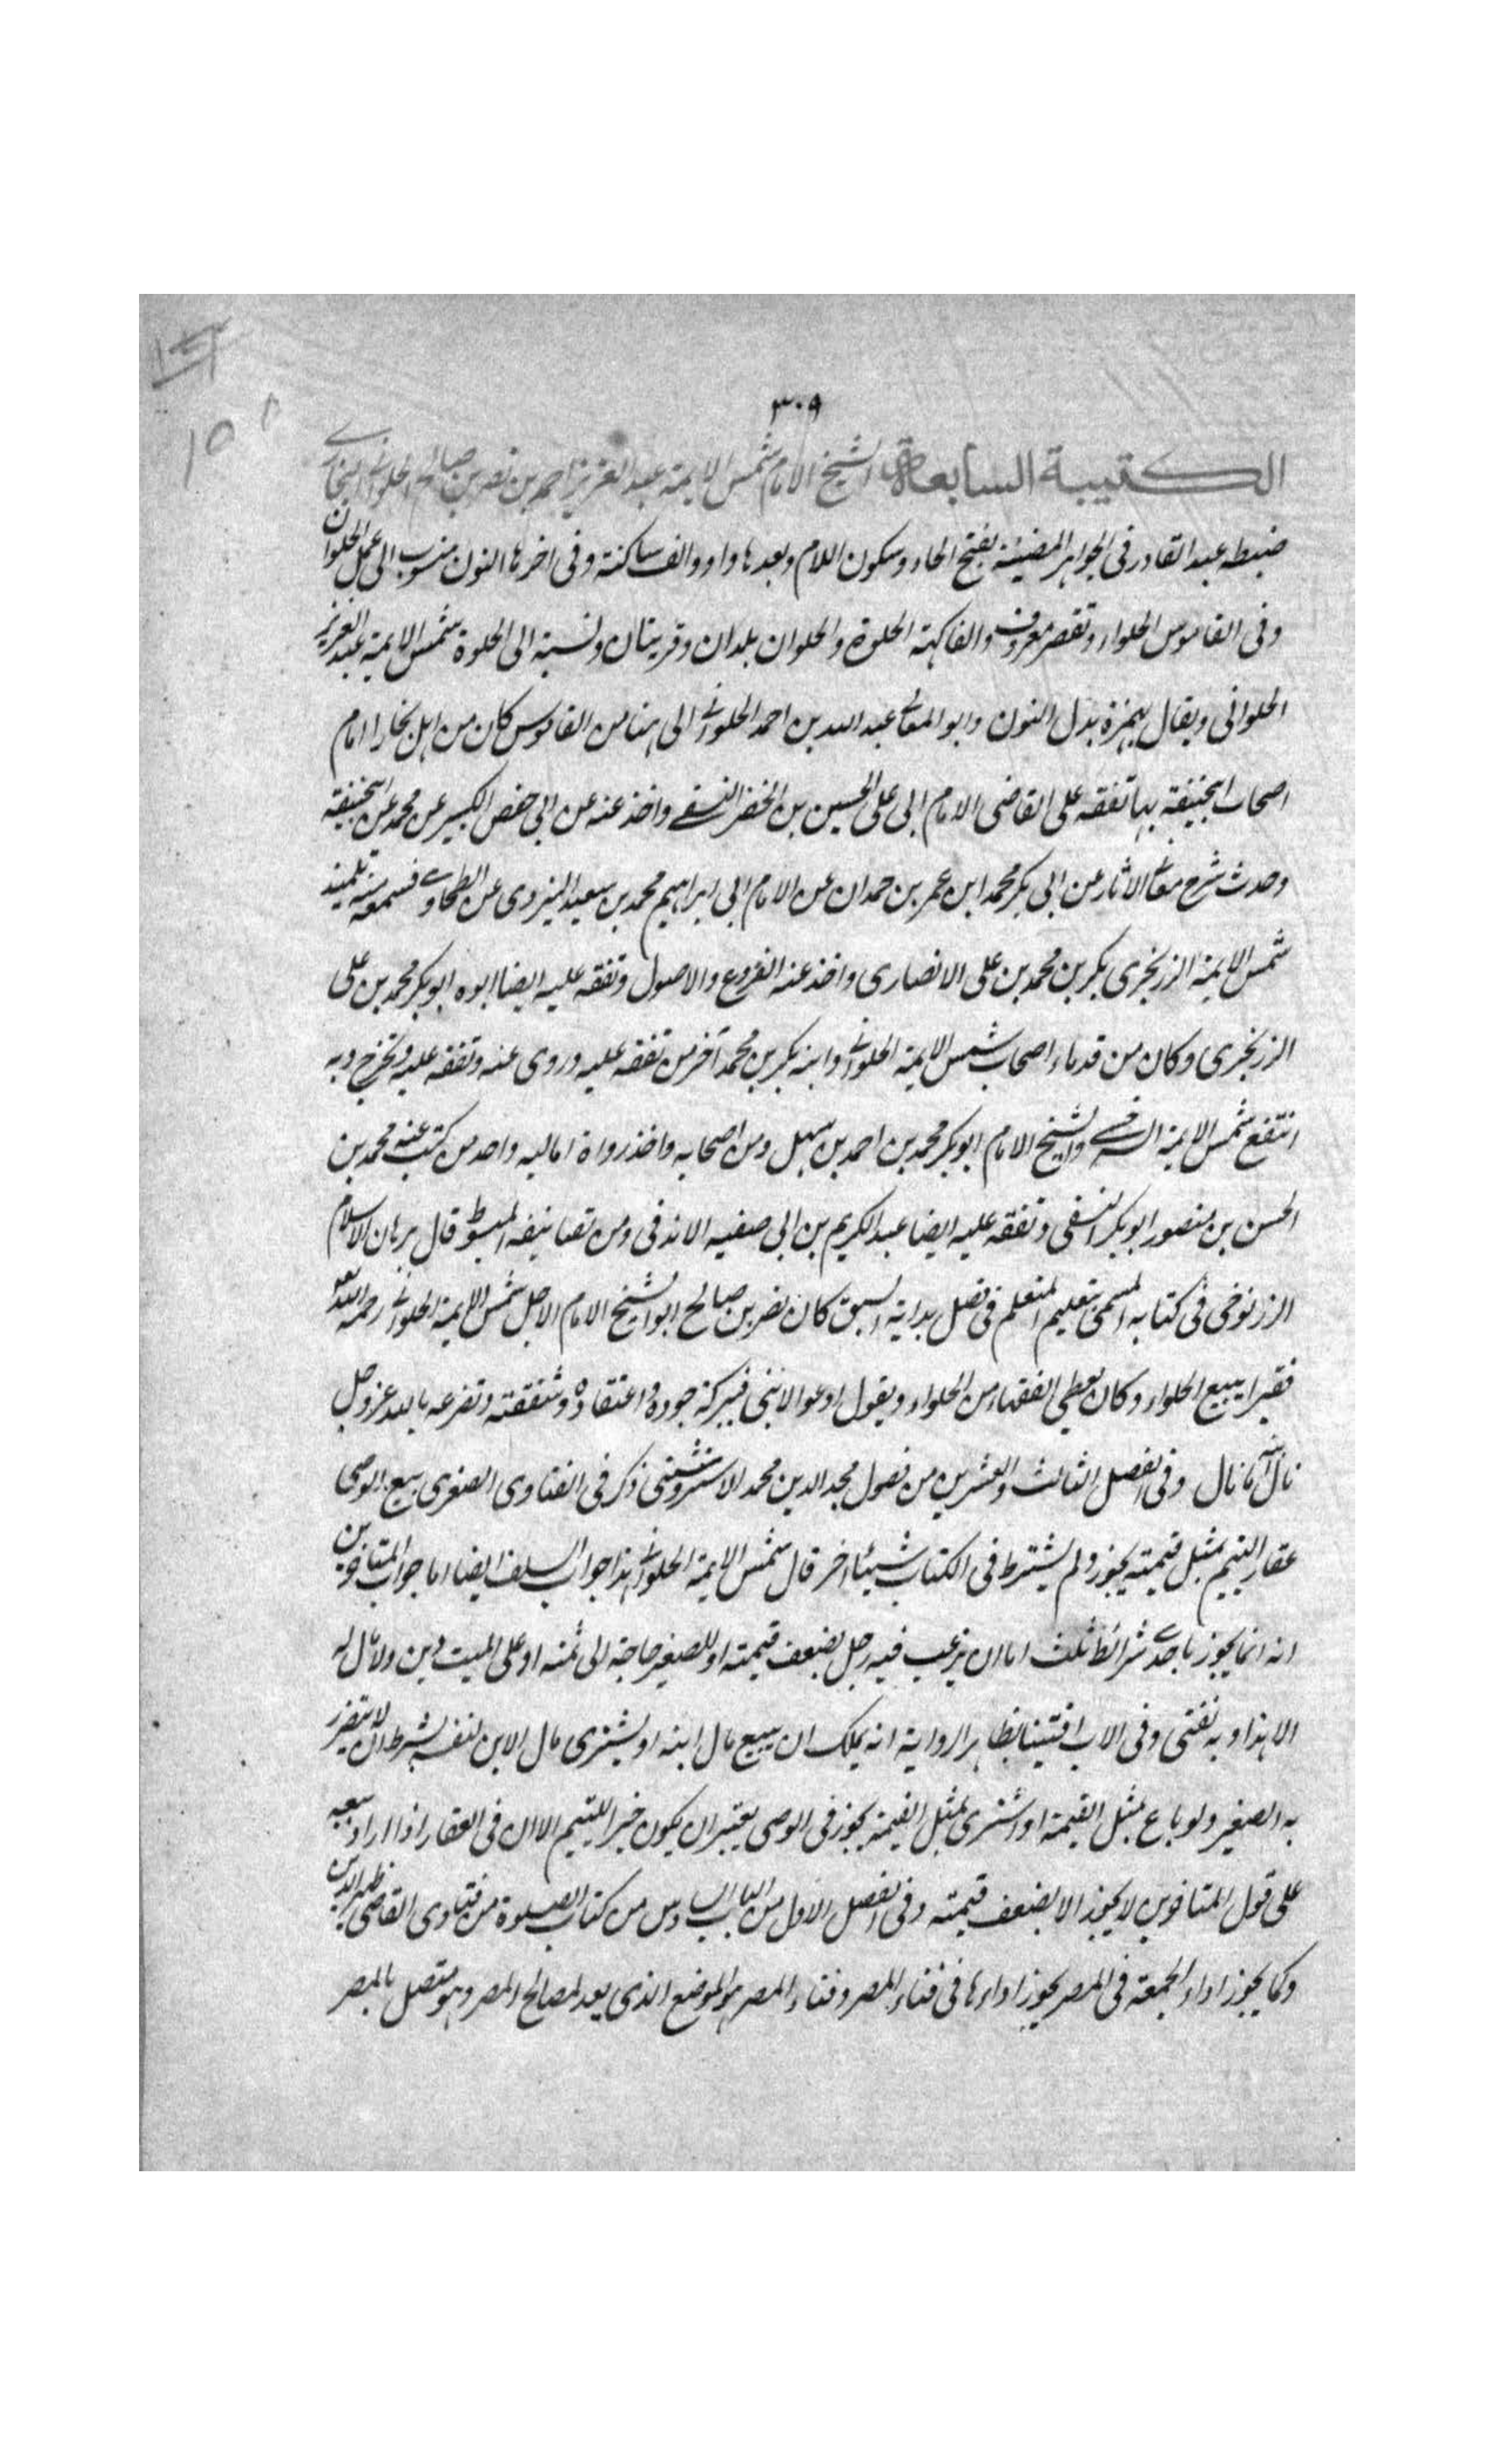 ٣٠٩
الكتيبة السابعة الشيخ الامام شمس الايمة عبد العزيز احمد بن نصر بن صالح الحلوانے البخارے
ضبطه عبد القادر فى الجواهر المضيئة بفتح الحاء وسكون اللام وبعدها واو والف ساكنة وفى اخرها النون منسوب الى عمل الحلوان
وفى القاموس الحلواء وتقصر معروف والفاكهة الحلوة والحلوان بلدان وقريتان ونسبة الى الحلوة شمس الايمة عبد العزيز
الحلوانى ويقال بهمزة بدل النون وابو المعالے عبد الله بن احمد الحلوانے الى هنا من القاموس كان من اهل بخارا امام
اصحاب ابيحنيفة بها تفقه على القاضى الامام ابى على الحسين بن الخضر النسفے واخذ عنه عن ابى حفص الكبير عن محمد عن ابيحنيفة
وحدث شرح معانے الاثار عن ابى بكر محمد ابن عمر بن حمدان عن الامام ابى ابراهيم محمد بن سعيد اليزدى عن الطحاوے فسمعه منه تلميذ
شمس الايمة الزرنجرى بكر بن محمد بن على الانصارى واخذ عنه الفروع والاصول وتفقه عليه ايضا ابوه ابو بكر محمد بن على
الزرنجرى وكان من قدماء اصحاب شمس الايمة الحلوانے وابنه بكر بن محمد آخر من تفقه عليه وروى عنه وتفقه عليه وتخرج وبه
انتفع شمس الايمة السرخسے والشيخ الامام ابو بكر محمد بن احمد بن سهل ومن اصحابه واخذ رواة اماليه واحد من كتب عنه محمد بن
الحسن بن منصور ابو بكر النسفى وتفقه عليه ايضا عبد الكريم بن ابى صفيه الاندقى ومن تصانيفه المبسوط قال برهان الاسلام
الزرنوجى فى كتابه المسمى بتعليم المتعلم فى فصل بداية السبق كان نصر بن صالح ابو الشيخ الامام الاجل شمس الايمة الحلوانے رحمه الله
فقيرا يبيع الحلواء وكان يعطى الفقهاء من الحلواء ويقول ادعوا لابنى فببركة جوده واعتقاده وشفقته وتضرعه بالله عز وجل
نال ابنه ما نال وفى الفصل الثالث والعشرين من فصول مجد الدين محمد الاستروشنى ذكر فى الفتاوى الصغرى بيع الوصى
عقار اليتيم بمثل قيمته يجوز ولم يشترط فى الكتاب شيئا اخر قال شمس الايمة الحلوانے هذا جواب السلف ايضا اما جواب المتاخرين
انه انما يجوز باحدے شرائط ثلث اما ان يرغب فيه رجل بضعف قيمته او للصغير حاجة الى ثمنه او على الميت دين ولا مال له
الا هذا وبه نفتى وفى الاب افتينا بظاهر الرواية انه يملك ان يبيع مال ابنه او يشترى مال الابن لنفسه بشرط ان لا يتضرر
به الصغير ولو باع بمثل القيمة او اشترى بمثل القيمة يجوز فى الوصى يعتبر ان يكون خيرا لليتيم الا ان فى العقار اذا اراد بيعه
على قول المتاخرين لا يجوز الا بضعف قيمته وفى الفصل الاول من الباب السادس من كتاب الصلوة من فتاوى القاضى ظهير الدين
وكما يجوز اداء الجمعة فى المصر يجوز اداءها فى فناء المصر وفناء المصر هو الموضع الذى يعد لمصالح المصر وهو متصل بالمصر